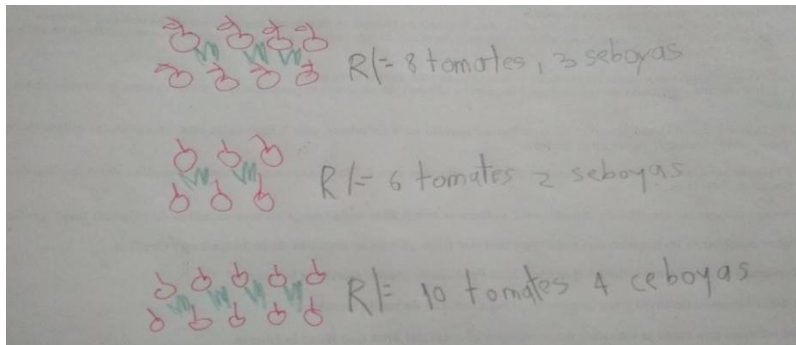 R/= 8 tomates, 3 seboyas
R/= 6 tomates 2 seboyas
R/= 10 tomates 4 ceboyas